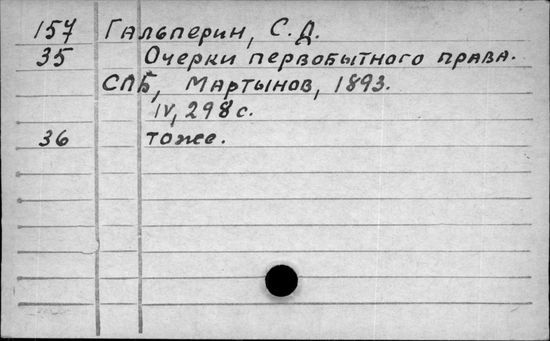 157 Гальперин, С.Д.
35 Очерки первобытного права.
СПБ, Мартынов, 1893.
IV, 298 с.
36 тоже.